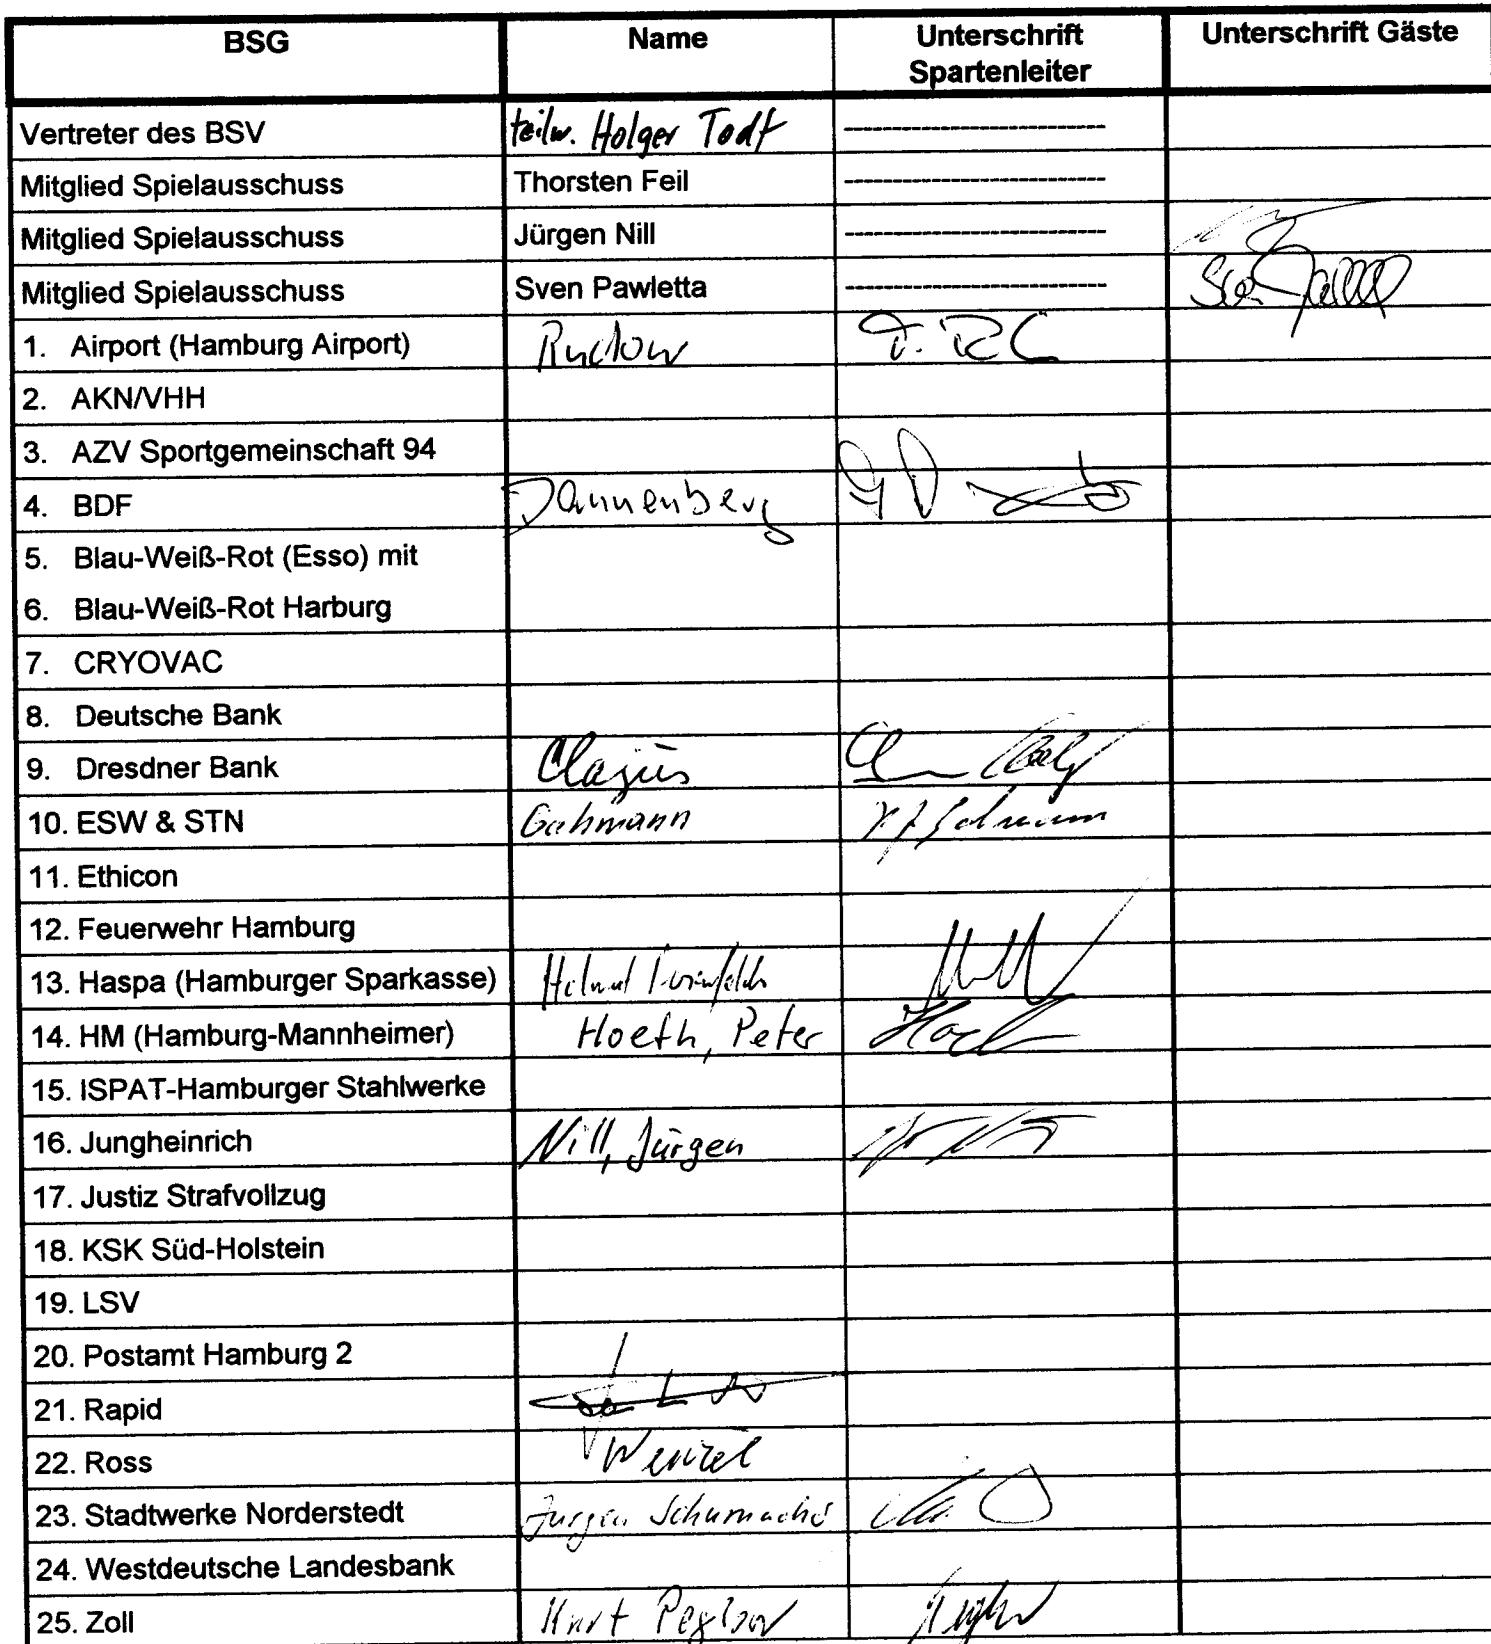 BSG Name Unterschrift Spartenleiter Unterschrift Gäste
Vertreter des BSV teilw. Holger Todt --------------------------
Mitglied Spielausschuss Thorsten Feil --------------------------
Mitglied Spielausschuss Jürgen Nill --------------------------
Mitglied Spielausschuss Sven Pawletta --------------------------
1. Airport (Hamburg Airport) Rudow
2. AKN/VHH
3. AZV Sportgemeinschaft 94
4. BDF Dannenberg
5. Blau-Weiß-Rot (Esso) mit
6. Blau-Weiß-Rot Harburg
7. CRYOVAC
8. Deutsche Bank
9. Dresdner Bank Clajus
10. ESW & STN Gehmann
11. Ethicon
12. Feuerwehr Hamburg
13. Haspa (Hamburger Sparkasse) Helmut
14. HM (Hamburg-Mannheimer) Hoeth, Peter
15. ISPAT-Hamburger Stahlwerke
16. Jungheinrich Nill, Jürgen
17. Justiz Strafvollzug
18. KSK Süd-Holstein
19. LSV
20. Postamt Hamburg 2
21. Rapid
22. Ross Wenzel
23. Stadtwerke Norderstedt Jürgen Schumacher
24. Westdeutsche Landesbank
25. Zoll Kurt Peglow